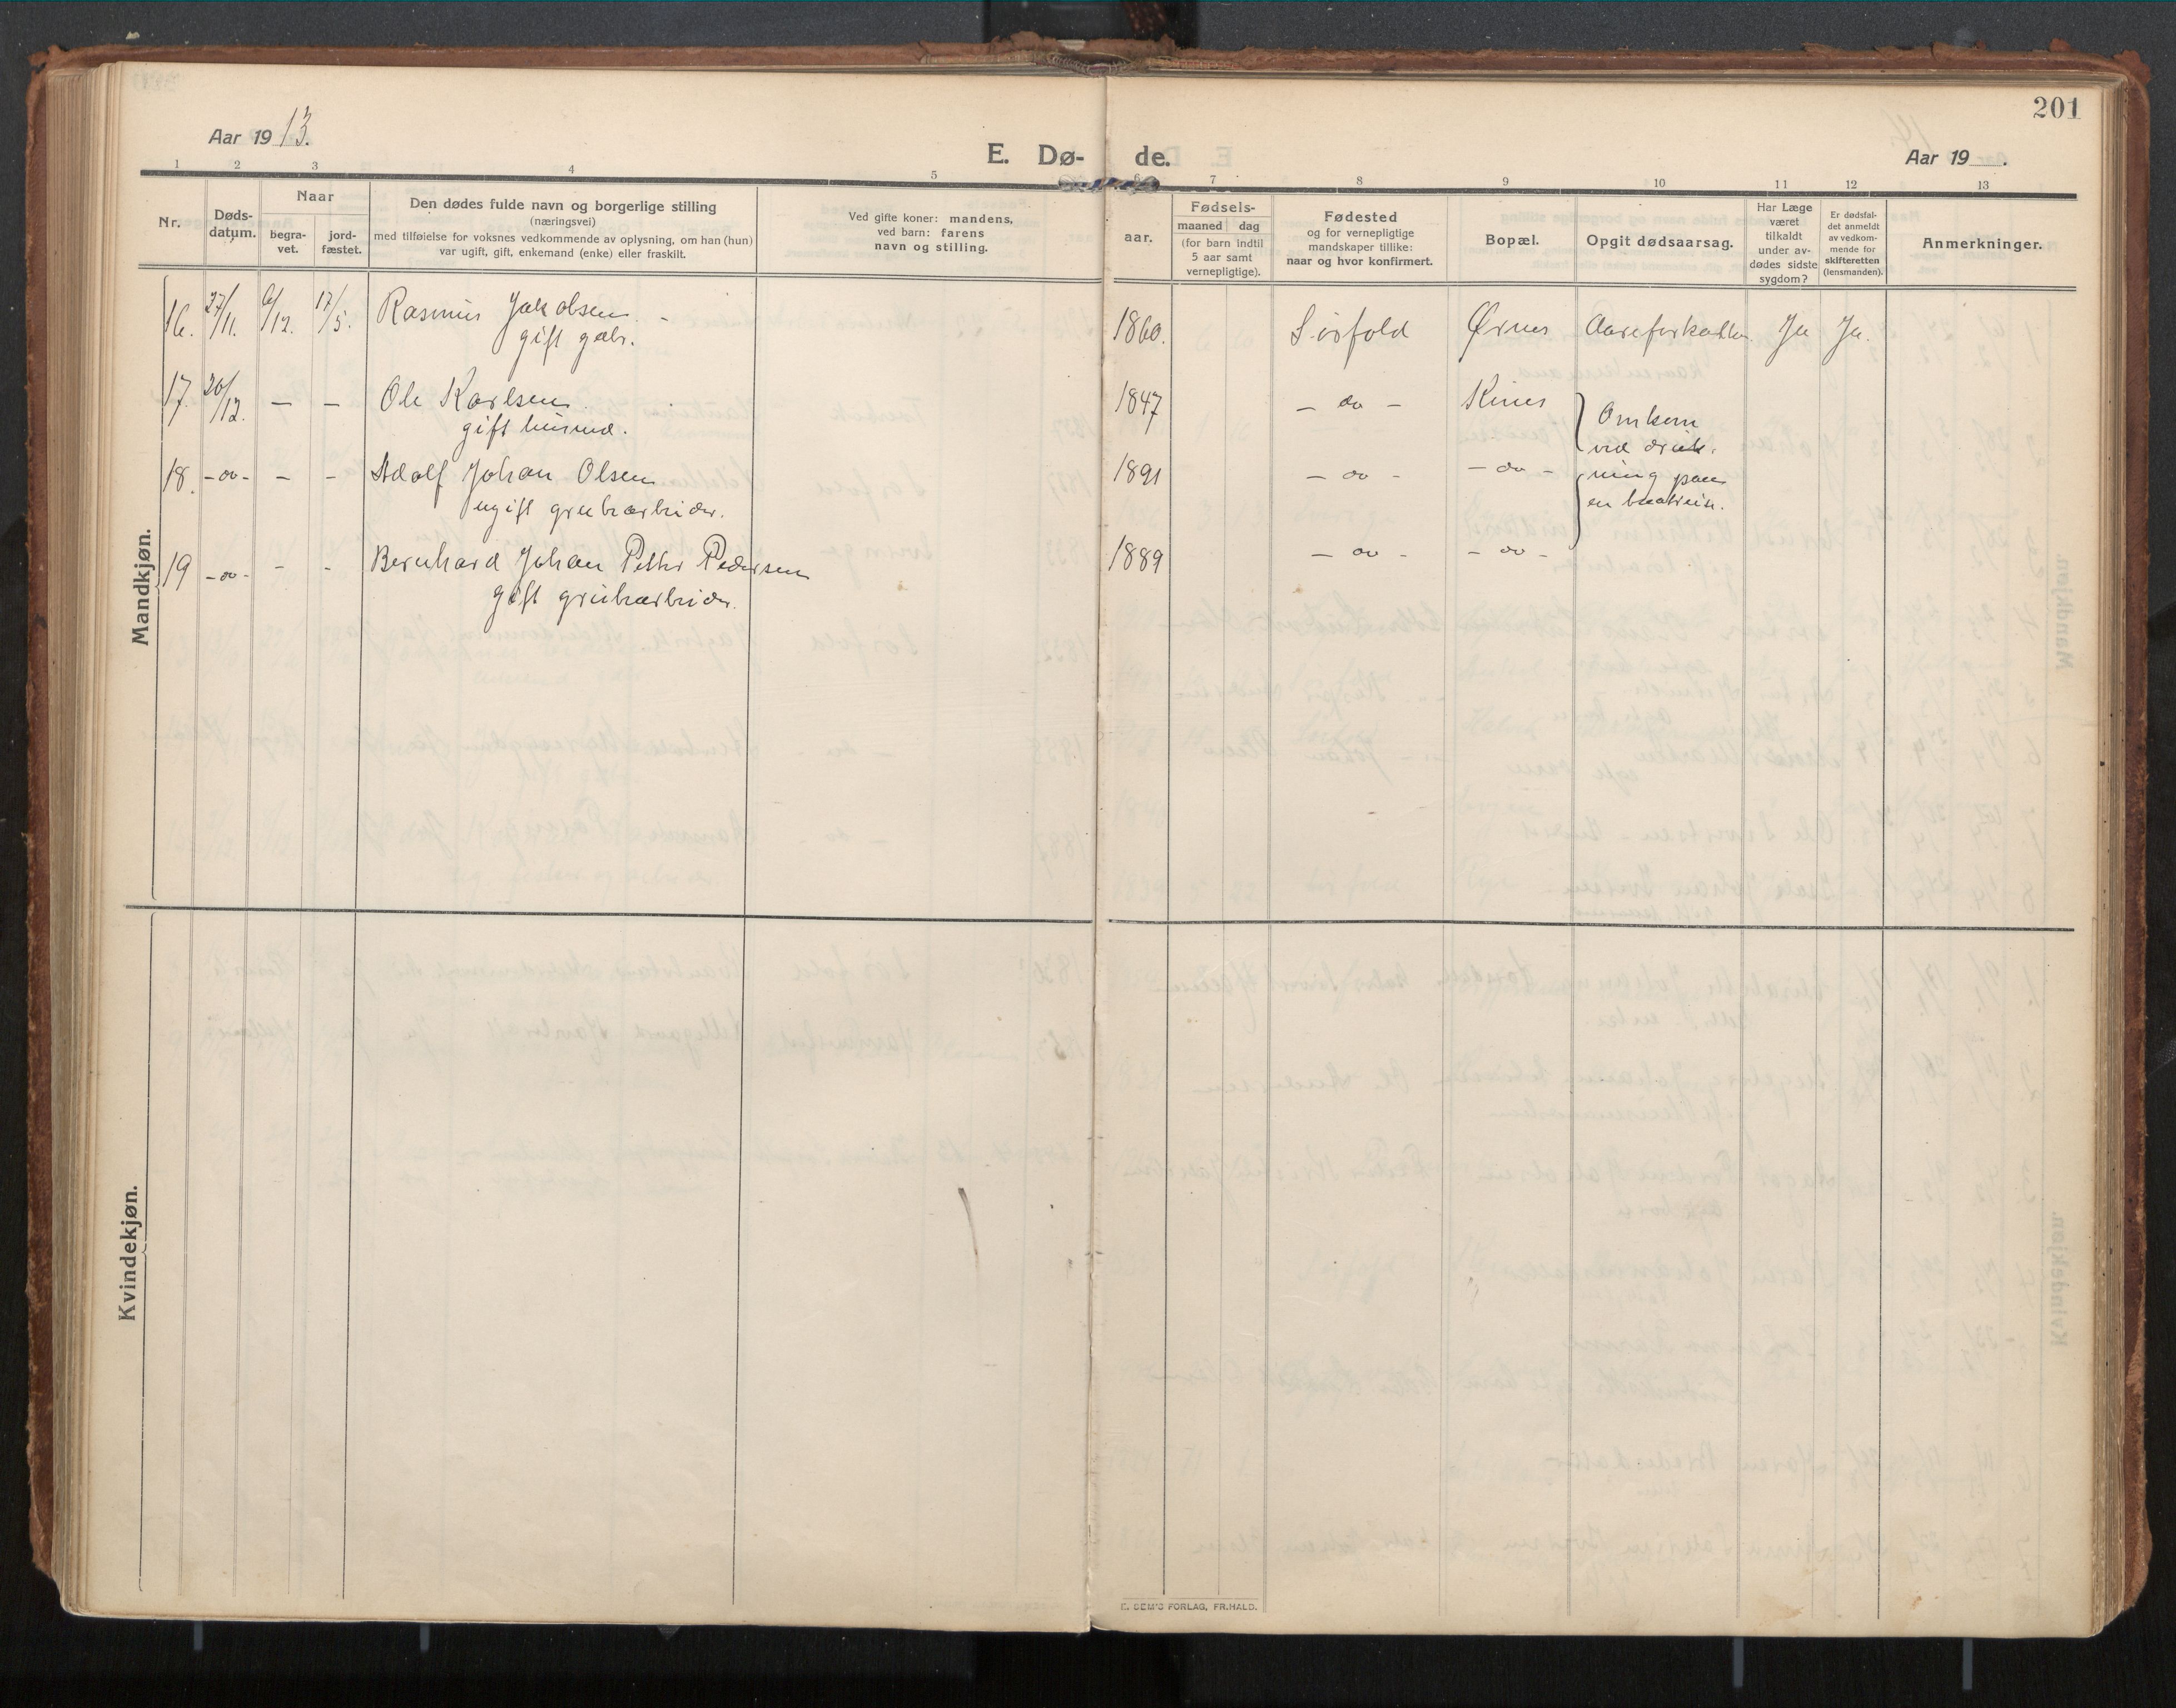 201
Aar 1913.
E. Dø- de.
Aar 19 .
1 2 3 4 5 6 7 8 9 10 11 12 13
Nr.
Døds-
datum.
Naar
begra-
vet.
jord-
fæstet.
Den dødes fulde navn og borgerlige stilling
(næringsvei)
med tilføielse for voksnes vedkommende av oplysning, om han (hun)
var ugift, gift, enkemand (enke) eller fraskilt.
Ved gifte koner: mandens,
ved barn: farens
navn og stilling.
Fødsels-
aar.
maaned dag
(for barn indtil
5 aar samt
vernepligtige).
Fødested
og for vernepligtige
mandskaper tillike:
naar og hvor konfirmert.
Bopæl.
Opgit dødsaarsag.
Har Læge
været
tilkaldt
under av-
dødes sidste
sygdom?
Er dødsfal-
det anmeldt
av vedkom-
mende for
skifteretten
(lensmanden).
Anmerkninger.
Mandkjøn.
16. 27/11. 6/12. 17/5. Rasmus Jakobsen. - 1860. Sørfold Ørnes Aareforkalkn. Ja Ja.
gift gbr.
17. 20/12. - - Ole Karlsen 1847 - do - Kines
gift husmd.
Omkom
ved druk-
18. - do - - - Adolf Johan Olsen 1891 - do - - do -
ning paa
ugift grubearbeider.
en baatreise.
19 - do - - - Bernhard Johan Petter Pedersen 1889 - do - - do -
gift grubearbeider.
Kvindekjøn.
E. SEM'S FORLAG, FR.HALD.